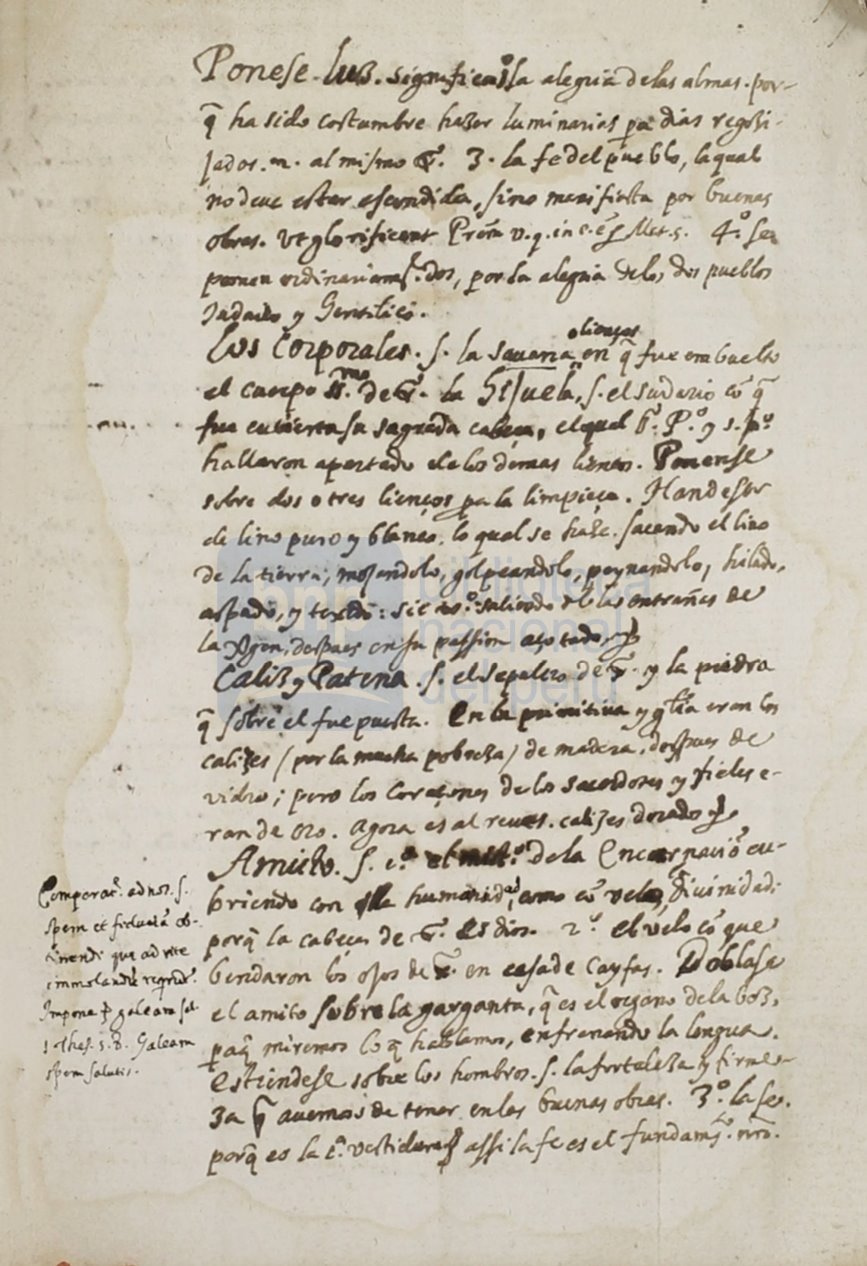 Ponese luz. significase la alegria de las almas. por-
q̃ ha sido costumbre hazer luminarias pa dias regozi-
jados. al mismo X̃. 3. la fe del pueblo, la qual
no deue estar escondida, sino manifiesta por buenas
obras. vt glorificent Prẽm v. q. in c. e. Mat. 5. 4.º se
ponen ordinariamte. dos, por la alegria de los dos pueblos
Judaico y Gentilico.
Los Corporales. s. la sauana o lienços en q̃ fue embuelto
el cuerpo SS.mo de X̃. la Hijuela, s. el sudario cõ q̃
fue cubierta su sagrada cabeça, el qual S. P.º y S. Jº
hallaron apartado de los demas lienços. Ponense
sobre dos o tres lienços pa la limpieça. Han de ser
de lino puro y blanco, lo qual se haze. sacando el lino
de la tierra, mojandolo, golpeandolo, peynandolo, hilado,
aspado, y texido: sic X.º saliendo de las entrañas de
la Vgen, despues en su passion açotado, &
Caliz y Patena. s. el sepulcro de X̃. y la piedra
q̃ sobre el fue puesta. En la primitiua ygl̃ia eran los
calizes (por la mucha pobreza) de madera, despues de
vidro; pero los coraçones de los sacerdotes y fieles e-
ran de oro. Agora es al reues. calizes dorados &.
Amicto. s. 1.º el mist.º de la Encarnaciõ cu-
briendo con la humanidad, como cõ velo, diuinidad:
porq̃ la cabeça de X̃. es dios. 2.º el velo cõ que
bendaron los ojos de X̃. en casa de Cayfas. Doblase
el amito sobre la garganta, q̃ es el organo de la boz,
paq̃ miremos lo q̃ hablamos, enfrenando la lengua.
estiendese sobre los hombros. s. la fortaleza y firme-
za q̃ auemos de tener en las buenas obras. 3.º la fe.
porq̃ es la 1.ª vestidura & assi la fe es el fundamto. nr̃o.
Comparat. ad nos. s.
spem et fiduciã ob-
tinendi que ad rite
immolandũ
Impone galeam sal
1. Thes. 5. 8. Galeam
spem salutis.
biblioteca
nacional
del perú